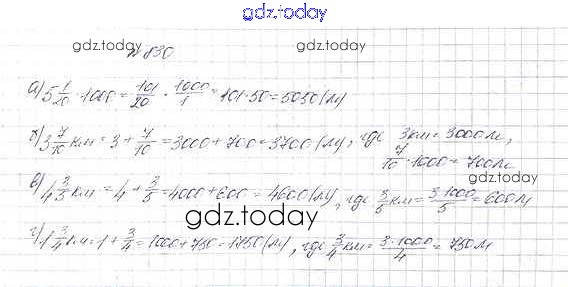 gdz.today
№ 830
gdz.today gdz.today
а) 5 1/20 · 1000 = 101/20 · 1000/1 = 101 · 50 = 5050 (м)
б) 3 7/10 км = 3 + 7/10 = 3000 + 700 = 3700 (м), где 3 км = 3000 м,
7/10 · 1000 = 700 м
в) 4 3/5 км = 4 + 3/5 = 4000 + 600 = 4600 (м), где 3/5 км = 3·1000/5 = 600 м
gdz.today
г) 1 3/4 км = 1 + 3/4 = 1000 + 750 = 1750 (м), где 3/4 км = 3·1000/4 = 750 м
gdz.today